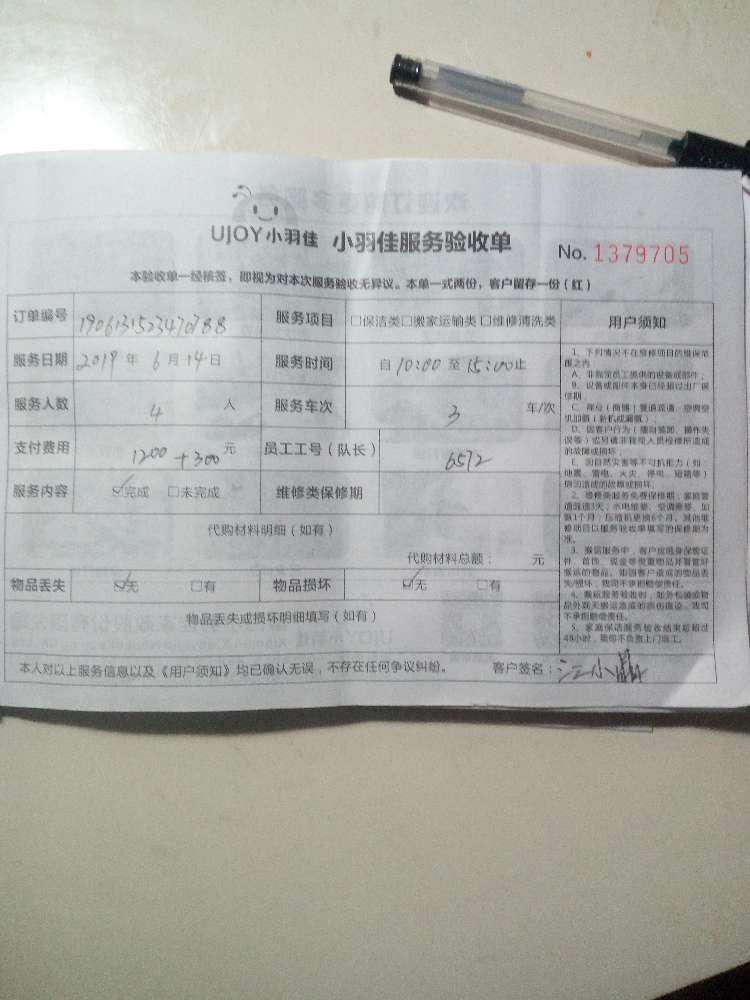 UJOY小羽佳 小羽佳服务验收单 No. 1379705
本验收单一经核签，即视为对本次服务验收无异议。本单一式两份，客户留存一份（红）
订单编号 1906131523470788 服务项目 □保洁类□搬家运输类□维修清洗类 用户须知
服务日期 2019年6月14日 服务时间 自10:00至15:00止
服务人数 4 人 服务车次 3 车/次
支付费用 1200+300元 员工工号（队长） 6572
服务内容 ☑完成 □未完成 维修类保修期
代购材料明细（如有）
代购材料总额： 元
物品丢失 ☑无 □有 物品损坏 ☑无 □有
物品丢失或损坏明细填写（如有）
本人对以上服务信息以及《用户须知》均已确认无误，不存在任何争议纠纷。 客户签名：江小
1、下列情况不在维修项目的维保范
围之内
A、非我司员工提供的设备或部件；
B、设备或部件本身已经超过出厂保
修期；
D、因客户行为（擅自装卸、操作失
误等）或另请非我司人员检修所造成
的故障或损坏；
E、因自然灾害等不可抗拒力（如
地震、雷电、火灾、停电、短路等）
原因造成的故障或损坏。
2、维修类服务免费保修期：家庭管
道疏通3天；水电维修、空调维修、加
氨1个月；压缩机更换6个月。其他维
修项目以服务验收单填写的保修期为
准。
3、搬运服务中，客户应随身保管证
件、首饰、现金等贵重物品并看管好
搬运的物品。如因客户造成的物品丢
失/损坏，我司不承担赔偿责任。
4、搬运服务验收时，如外包装或物
品外观无搬运造成的损伤痕迹，我司
不承担赔偿责任。
5、家庭保洁服务验收结束后超过
48小时，我司不负责上门返工。